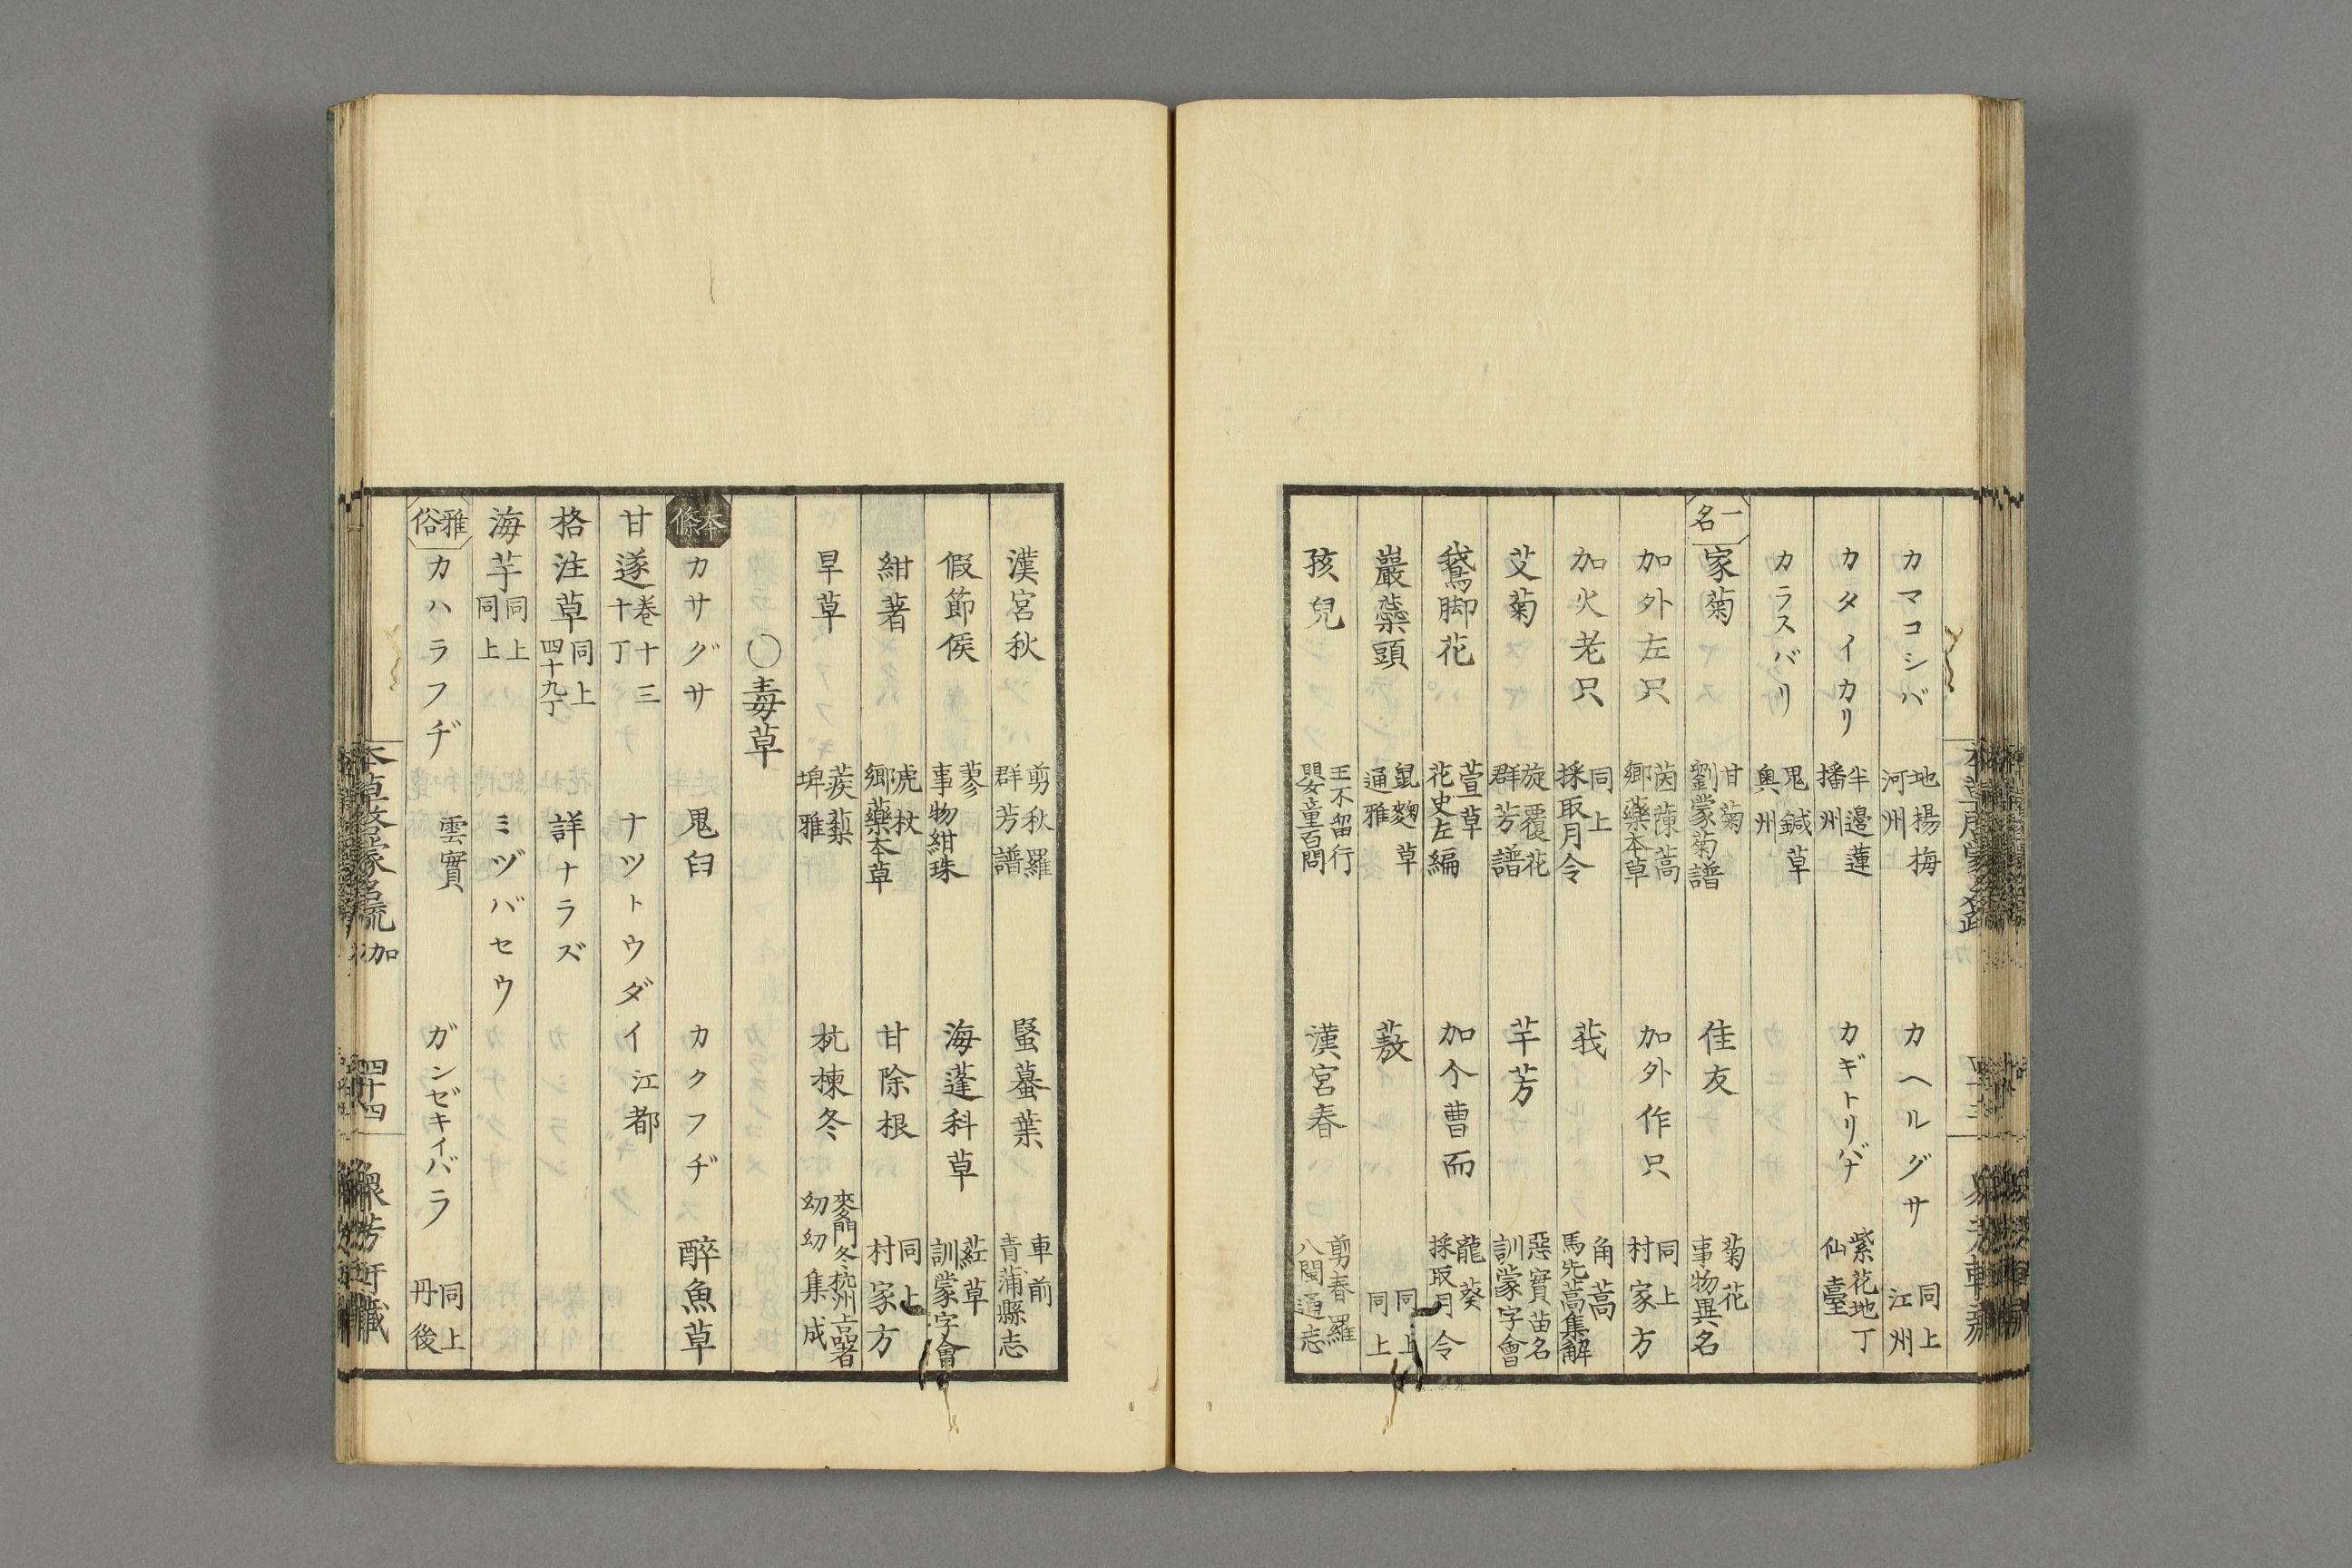 カマコシバ 地揚梅 河州 カヘルグサ 同上 江州
カタイカリ 半邊蓮 播州 カギトリバナ 紫花地丁 仙臺
カラスバリ 鬼鍼草 奥州
一名 家菊 甘菊 劉蒙菊譜 佳友 菊花 事物異名
加外左只 茵蔯蒿 鄉藥本草 加外作只 同上 村家方
加火老只 同上 採取月令 莪 角蒿 馬先蒿集解
艾菊 旋覆花 群芳譜 芊芳 惡實苗名 訓蒙字會
鵝脚花 萱草 花史左編 加个曹而 龍葵 採取月令
巖藥頭 鼠麴草 通雅 蔜 同上 同上
孩兒 王不留行 嬰童百問 漢宮春 剪春羅 八閩通志
漢宮秋 剪秋羅 群芳譜 蝦蟇葉 車前 青蒲縣志
假節侯 蓼 事物紺珠 海蓬科草 葒草 訓蒙字會
紺著 虎杖 鄉藥本草 甘除根 同上 村家方
旱草 蒺蔾 埤雅 杭楝冬 麥門冬杭州上品者 幼幼集成
〇毒草
本條 カサグサ 鬼臼 カクフヂ 醉魚草
甘遂 卷十三 十丁 ナツトウダイ 江都
格注草 同上 四十九丁 詳ナラズ
海芋 同上 同上 ミヅバセウ
雅俗 カハラフヂ 雲實 ガンゼキイバラ 同上 丹後
本草啓蒙名疏 加 四十四 衆芳軒藏